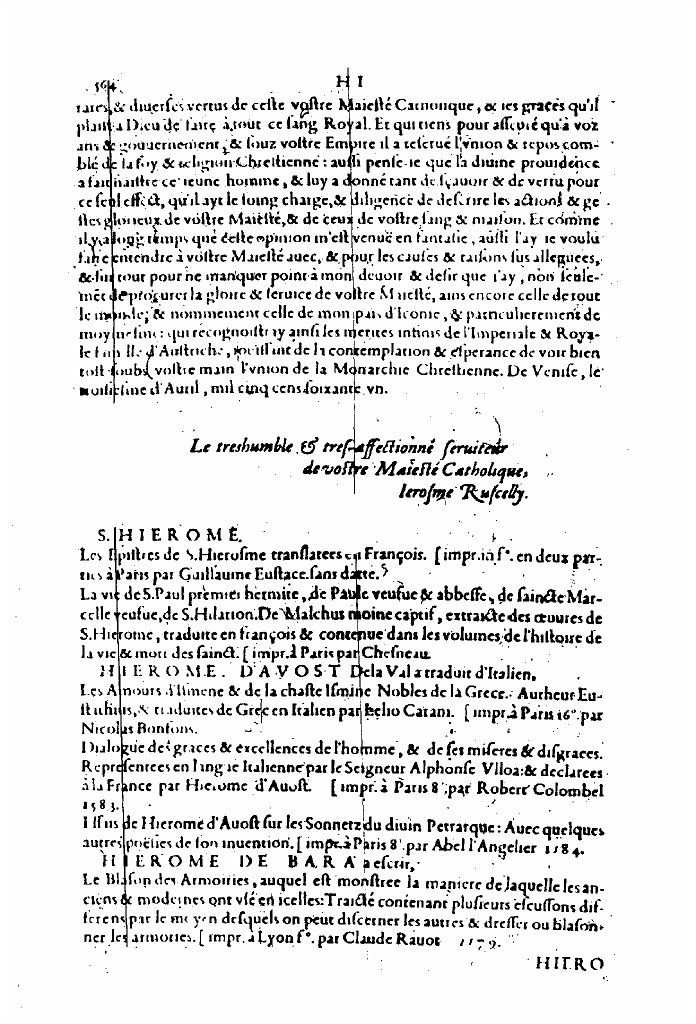 564 H I
rares, & diuerses vertus de ceste vostre Maiesté Catholique, & les graces qu'il
plaist a Dieu de faire à tout ce sang Royal. Et qui tiens pour asseuré qu'à voz
ans & gouuernement, & souz vostre Empire il a reserué l'vnion & repos com-
blé de la foy & religion Chrestienne: aussi pense-ie que la diuine prouidence
a fait naistre ce ieune homme, & luy a donné tant de sçauoir & de vertu pour
ce seul effect, qu'il ayt le soing charge, & diligence de descrire les actions & ge
stes glorieux de vostre Maiesté, & de ceux de vostre sang & maison. Et comme
il y a long temps que ceste opinion m'est venuë en fantasie, aussi l'ay ie voulu
faire entendre à vostre Maiesté auec, & pour les causes & raisons sus alleguees,
& sur tout pour ne manquer point à mon deuoir & desir que i'ay, non seule-
mēt de procurer la gloire & seruice de vostre Maiesté, ains encore celle de tout
le monde, & nommement celle de mon pais d'Iconie, & particulierement de
moymesme: qui recognoistray ainsi les merites infinis de l'Imperiale & Roya-
le famille d'Austriche, iouissant de la contemplation & esperance de voir bien
tost soubs vostre main l'vnion de la Monarchie Chrestienne. De Venise, le
troisiesme d'Auril, mil cinq cens soixante vn.
Le treshumble & tres-affectionné seruiteur
de vostre Maiesté Catholique,
Ierosme Ruscelly.
S. HIEROME.
Les Epistres de S. Hierosme translatees en François. [impr. in f°. en deux par-
ties à Paris par Guillaume Eustace. sans datte.
La vie de S. Paul premier hermite, de Paule veufue & abbesse, de saincte Mar-
celle veufue, de S. Hilarion. De Malchus moine captif, extraicte des œuures de
S. Hierome, traduite en françois & contenue dans les volumes de l'histoire de
la vie & mort des sainct. [impr. à Paris par Chesneau.
HIEROME. D'AVOST De la Val a traduit d'Italien,
Les Amours d'Ismene & de la chaste Ismine Nobles de la Grece. Autheur Eu-
stathius, & traduites de Grec en Italien par Lelio Carani. [impr. à Paris 16°. par
Nicolas Bonfons.
Dialogue des graces & excellences de l'homme, & de ses miseres & disgraces.
Representees en langue Italienne par le Seigneur Alphonse Vlloa: & declarees
à la France par Hierome d'Auost. [impr. à Paris 8°. par Robert Colombel
1583.
Essais de Hierome d'Auost sur les Sonnetz du diuin Petrarque: Auec quelques
autres poësies de son inuention. [impr. à Paris 8°. par Abel l'Angelier 1584.
HIEROME DE BARA a escrit,
Le Blason des Armoiries, auquel est monstree la maniere de laquelle les an-
ciens & modernes ont vsé en icelles: Traicté contenant plusieurs escussons dif-
ferens par le moyen desquels on peut discerner les autres & dresser ou blason-
ner les armories. [impr. à Lyon f°. par Claude Rauot 1579.
HIERO